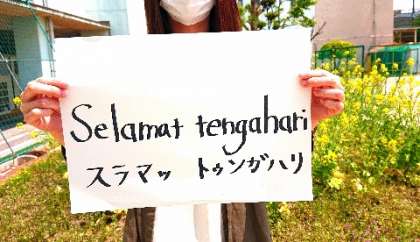 Selamat tengahari
スラマッ トゥンガハリ